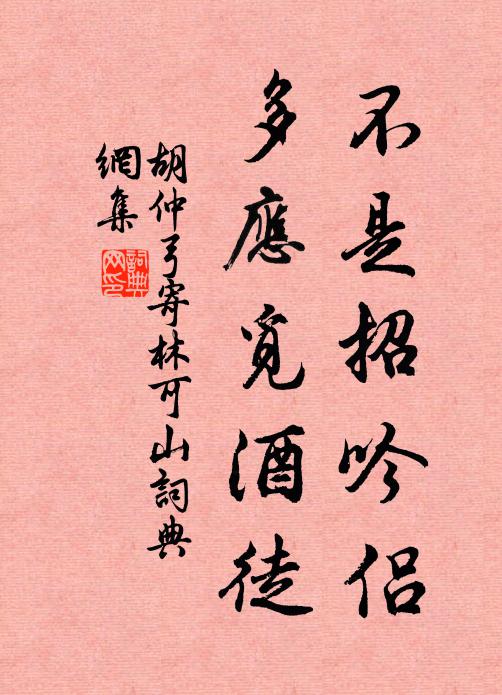 不是招吟侣
多應覓酒徒
胡仲弓寄林可山詞典
網集
詞典网印